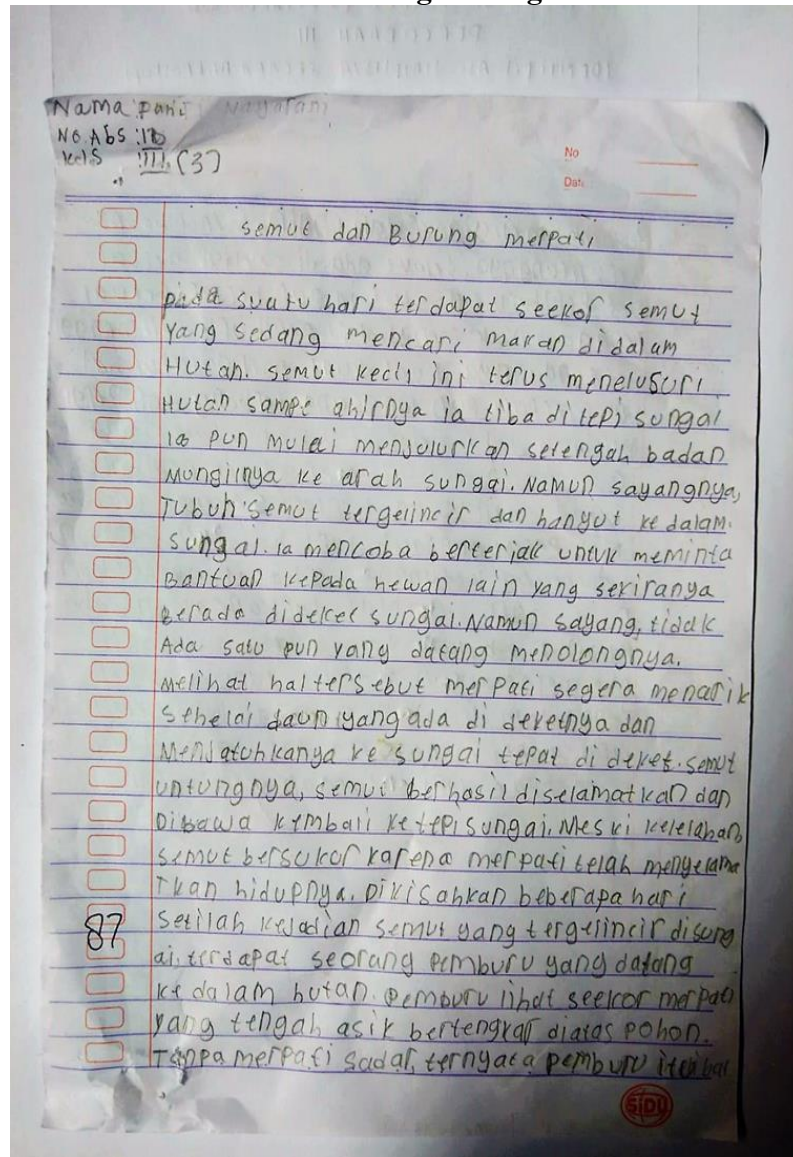 Nama Panji Nayatani
No Abs :
kels : III (3)
No
Date
semut dan Burung merpati
pada suatu hari terdapat seekor semut
yang sedang mencari makan didalam
Hutan. semut kecil ini terus menelusuri
Hutan sampe ahirnya ia tiba di tepi sungai
ia pun mulai menjulurkan setengah badan
Mungilnya ke arah sungai. Namun sayangnya,
Tubuh semut tergelincir dan hanyut ke dalam.
sungai. ia mencoba berteriak untuk meminta
Bantuan kepada hewan lain yang sekiranya
Berada didekel sungai. Namun sayang, tidak
Ada satu pun yang datang menolongnya.
Melihat hal tersebut merpati segera menarik
sehelai daun yang ada di deketnya dan
Menjatuhkanya ke sungai tepat di deket. semut
untungnya, semut berhasil diselamatkan dan
Dibawa kembali ke tepi sungai. Meski kelelahan,
semut bersukor karena merpati telah menyelama
Tkan hidupnya. Dikisahkan beberapa hari
setilah kejadian semut yang tergelincir disung
ai, terdapat seorang pemburu yang datang
ke dalam hutan. pemburu lihat seekor merpati
yang tengah asik bertengkar diatas pohon.
Tanpa merpati sadar, ternyata pemburu
87
SIDU